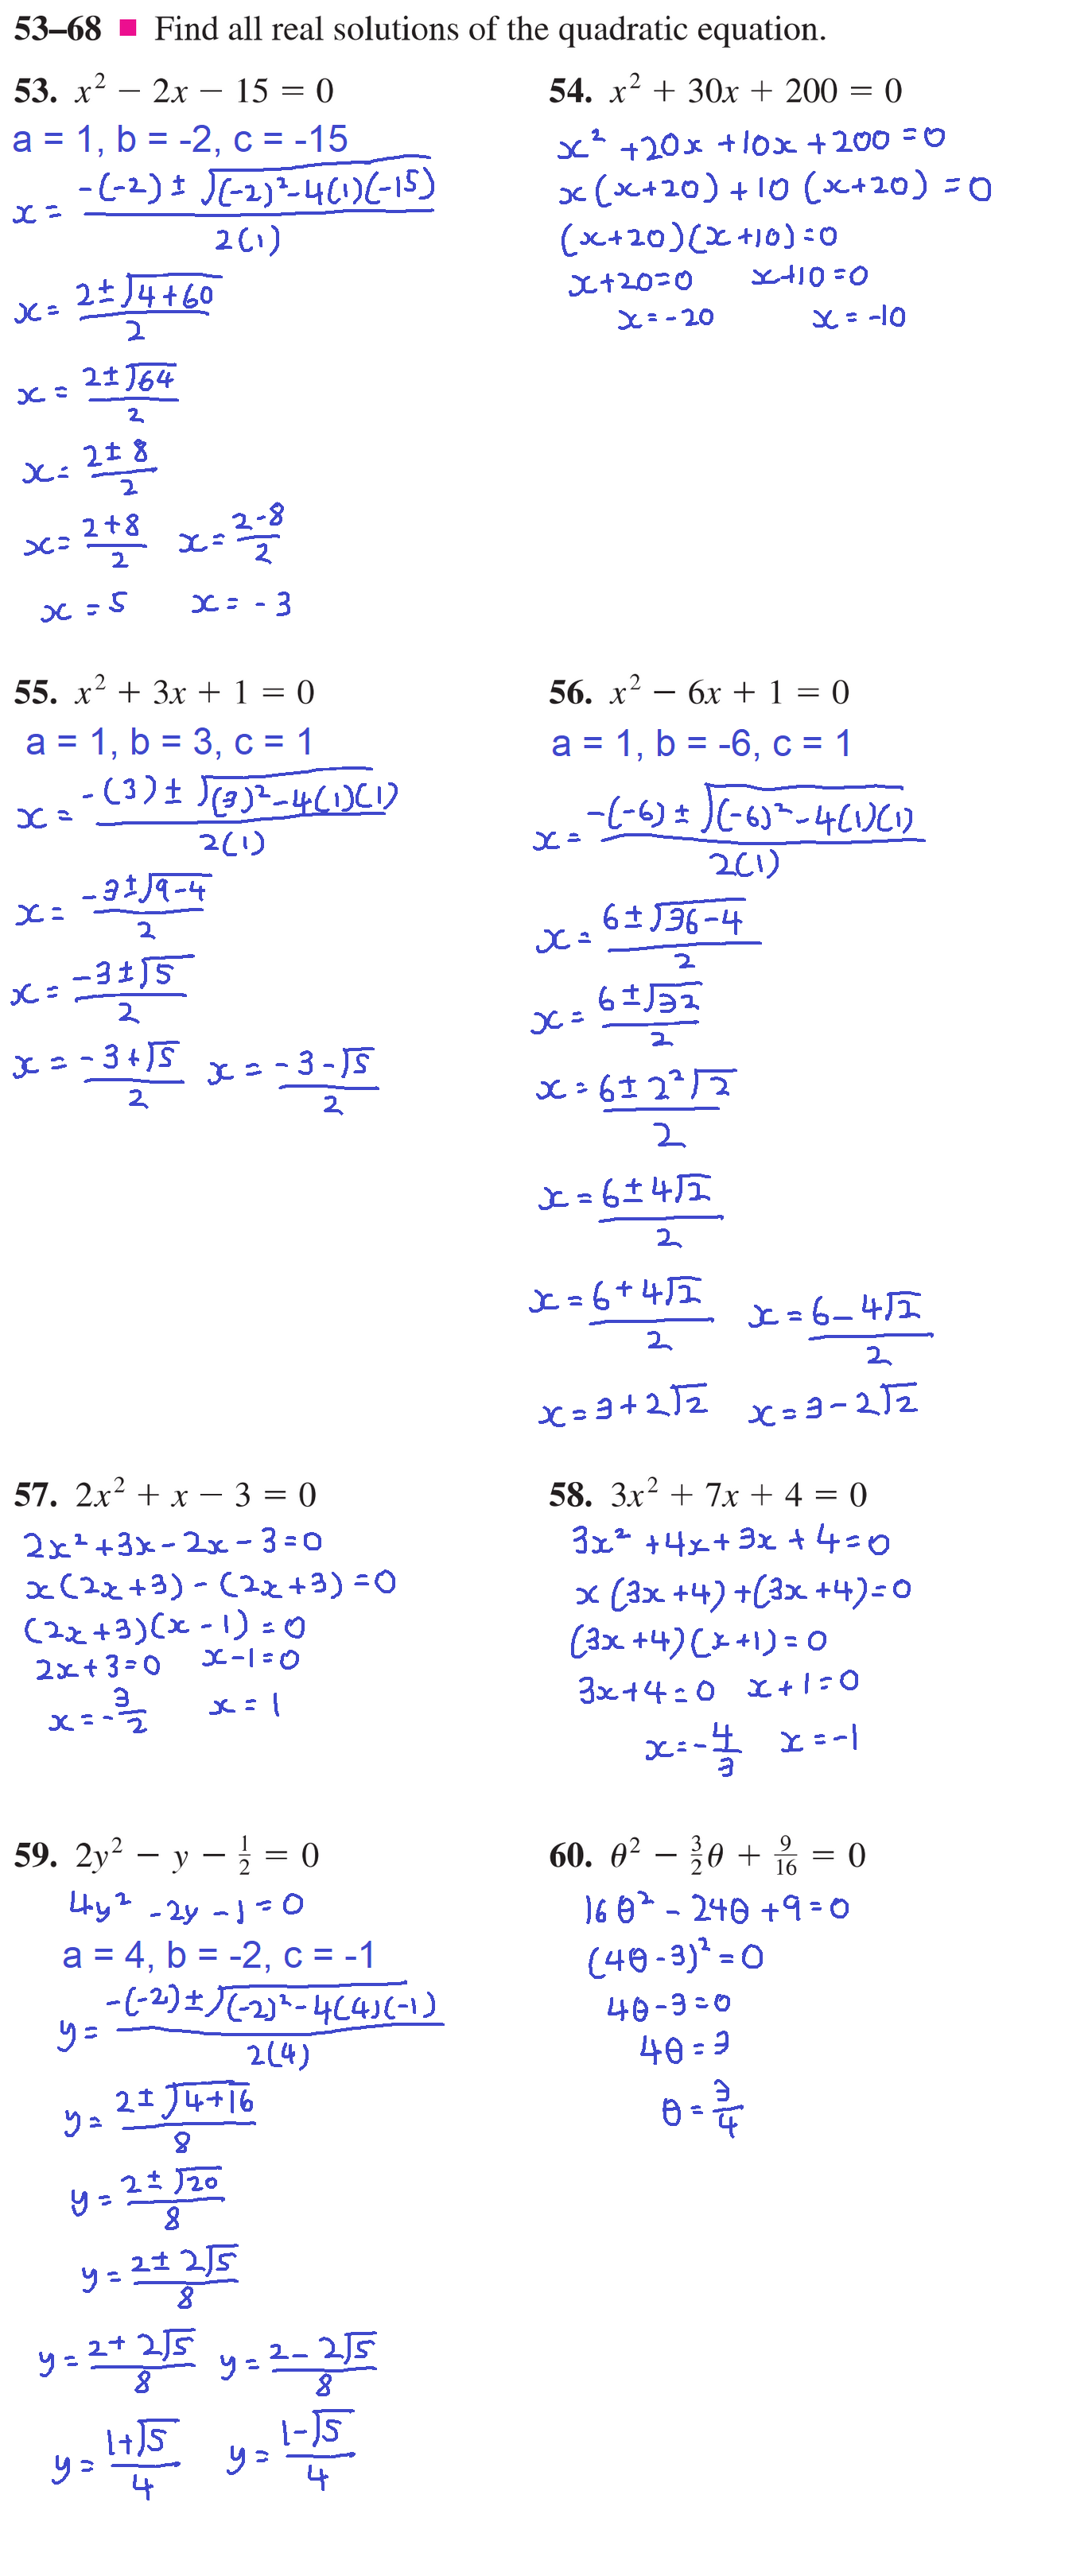 53–68 ■ Find all real solutions of the quadratic equation.
53. x² − 2x − 15 = 0
a = 1, b = -2, c = -15
x = (-(-2) ± √((-2)² - 4(1)(-15))) / 2(1)
x = (2 ± √(4+60)) / 2
x = (2 ± √64) / 2
x = (2 ± 8) / 2
x = (2+8)/2 x = (2-8)/2
x = 5 x = -3
54. x² + 30x + 200 = 0
x² + 20x + 10x + 200 = 0
x(x+20) + 10(x+20) = 0
(x+20)(x+10) = 0
x+20=0 x+10=0
x = -20 x = -10
55. x² + 3x + 1 = 0
a = 1, b = 3, c = 1
x = (-(3) ± √((3)² - 4(1)(1))) / 2(1)
x = (-3 ± √(9-4)) / 2
x = (-3 ± √5) / 2
x = (-3+√5)/2 x = (-3-√5)/2
56. x² − 6x + 1 = 0
a = 1, b = -6, c = 1
x = (-(-6) ± √((-6)² - 4(1)(1))) / 2(1)
x = (6 ± √(36-4)) / 2
x = (6 ± √32) / 2
x = (6 ± 2²√2) / 2
x = (6 ± 4√2) / 2
x = (6 + 4√2)/2 x = (6 - 4√2)/2
x = 3 + 2√2 x = 3 - 2√2
57. 2x² + x − 3 = 0
2x² + 3x - 2x - 3 = 0
x(2x+3) - (2x+3) = 0
(2x+3)(x-1) = 0
2x+3=0 x-1=0
x = -3/2 x = 1
58. 3x² + 7x + 4 = 0
3x² + 4x + 3x + 4 = 0
x(3x+4) + (3x+4) = 0
(3x+4)(x+1) = 0
3x+4=0 x+1=0
x = -4/3 x = -1
59. 2y² − y − 1/2 = 0
4y² - 2y - 1 = 0
a = 4, b = -2, c = -1
y = (-(-2) ± √((-2)² - 4(4)(-1))) / 2(4)
y = (2 ± √(4+16)) / 8
y = (2 ± √20) / 8
y = (2 ± 2√5) / 8
y = (2 + 2√5)/8 y = (2 - 2√5)/8
y = (1+√5)/4 y = (1-√5)/4
60. θ² − 3/2 θ + 9/16 = 0
16θ² - 24θ + 9 = 0
(4θ-3)² = 0
4θ-3=0
4θ=3
θ = 3/4